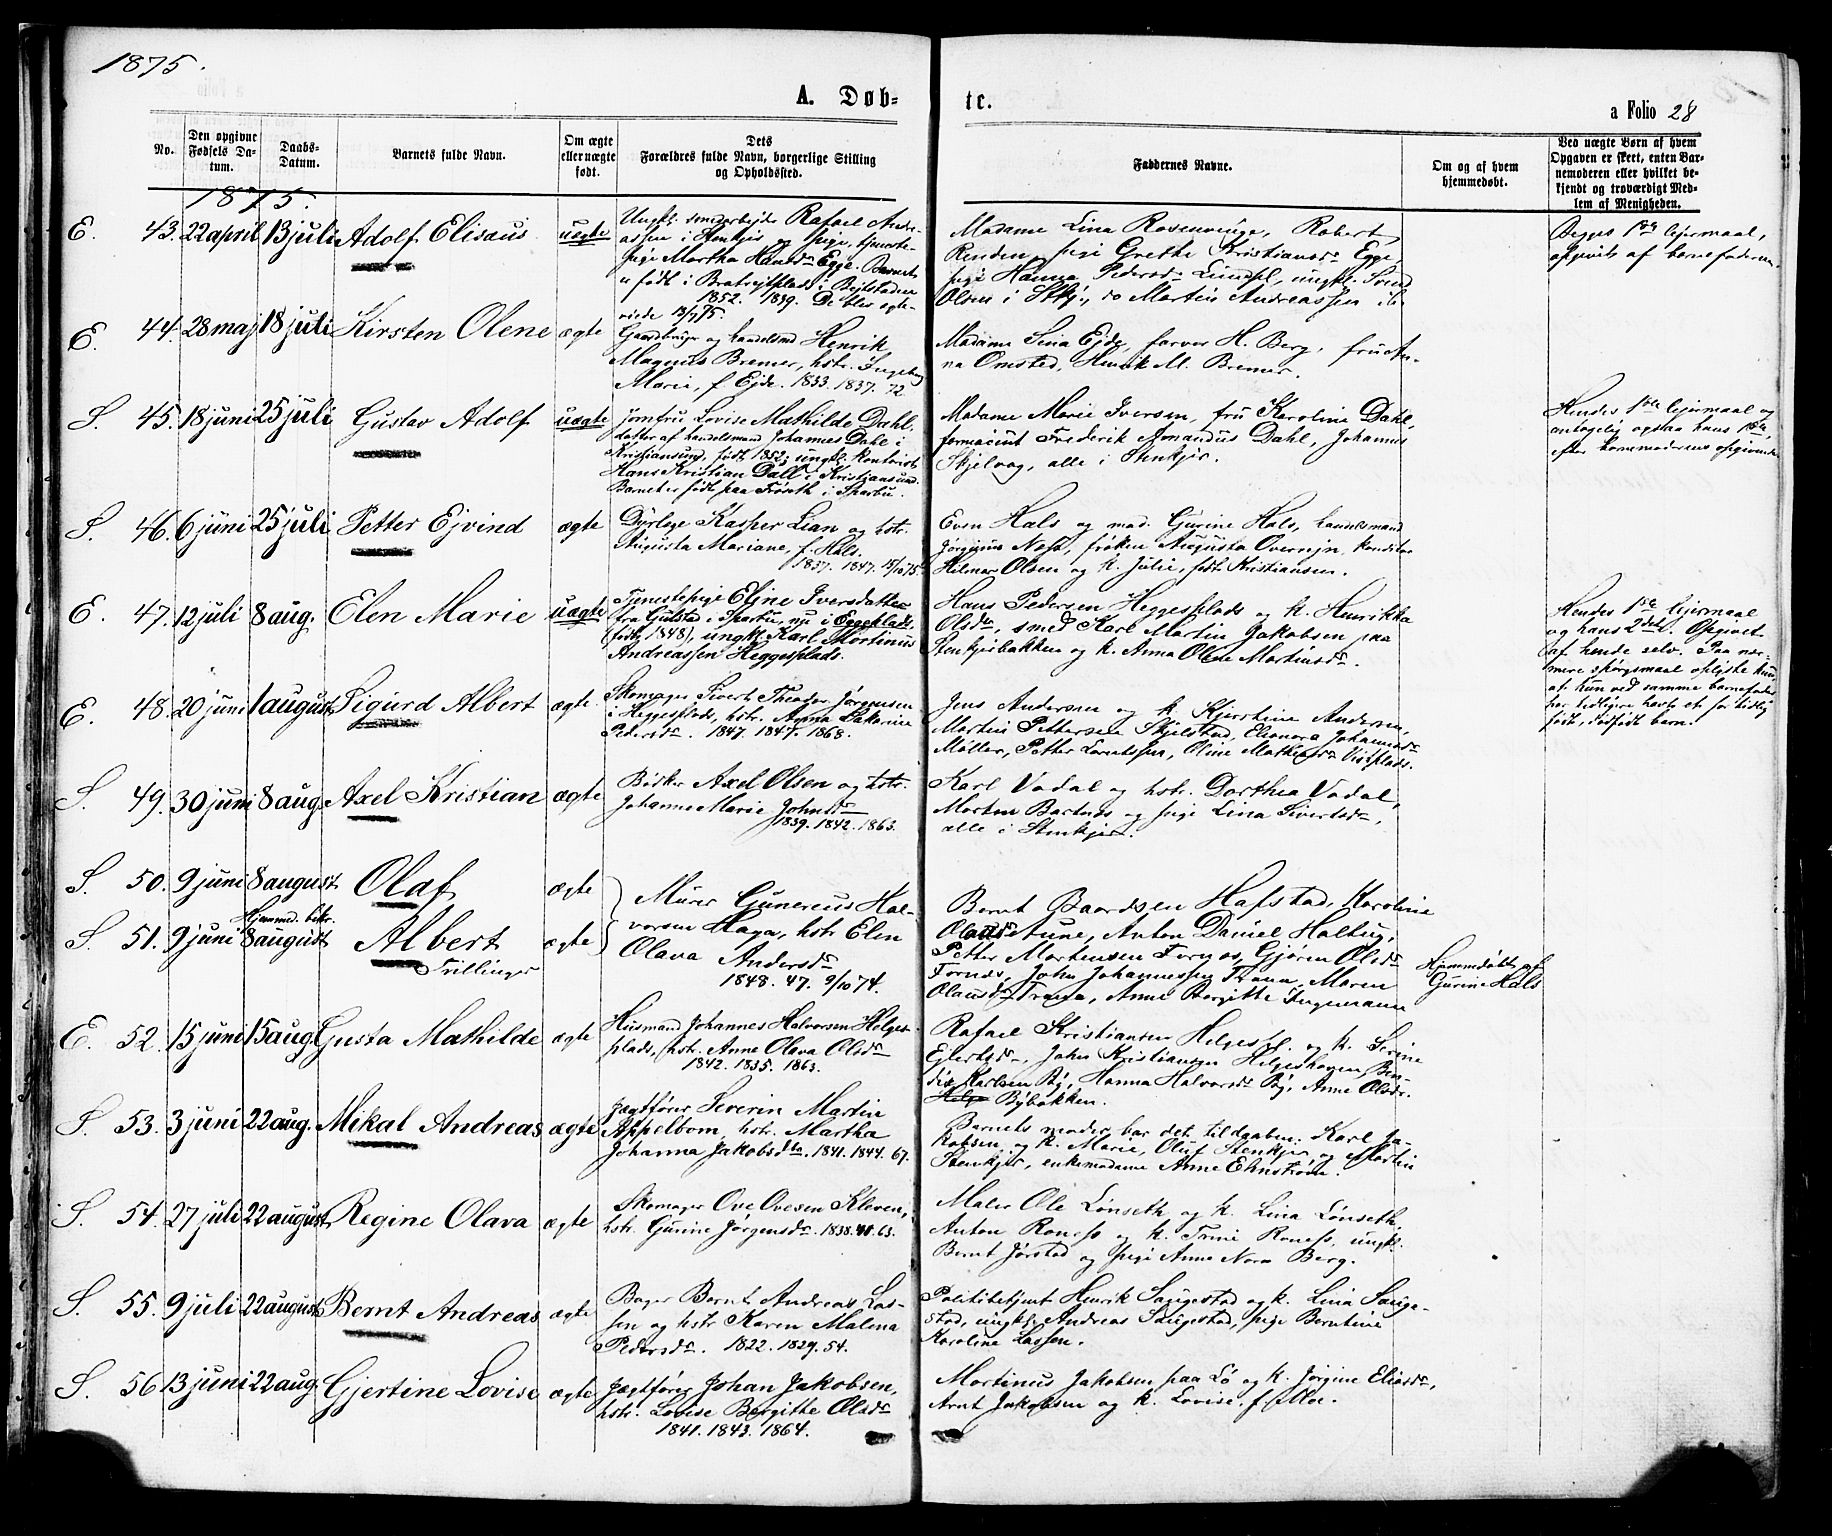 1875.
A. Døb-
te.
a Folio 28
No.
Den opgivne
Fødsels Da-
tum.
Daabs-
Datum.
Barnets fulde Navn.
Om ægte
eller uægte
født.
Dets
Forældres fulde Navn, borgerlige Stilling
og Opholdssted.
Faddernes Navne.
Om og af hvem
hjemmedøbt.
Ved uægte Børn af hvem
Opgaven er skeet, enten Bar-
nemoderen eller hvilket be-
kjendt og troværdigt Med-
lem af Menigheden.
1875.
E. 43. 22 april 13 juli Adolf Elisæus uægte
Ungk. smedarbejder Rafael Andre-
assen i Stenkjær og pige, tjeneste-
pige Martha Hansdr Egge. Barnet
er født i Bratrejtplads i Bejtstaden
1852. 1839. De blev egte-
viede 18/7 75.
Madame Lina Rosenvinge, Robert
Renden, pige Grethe Kristiansdr Egge,
pige Hanna Pedersdr Lundpl, ungk. Svend
Olsen i Stkj., do Martin Andreassen ib.
Begges 1ste lejermaal,
opgivet af barnefaderen
E. 44. 28 maj 18 juli Kirsten Olene ægte
Gaardbruger og handelsmd Henrik
Magnus Bremer, hstr. Ingeborg
Marie, f. Ejde. 1833. 1837. 72
Madame Sina Ejde, farver H. Berg, fru An-
na Omsted, Henrik M. Bremer.
S. 45. 18 juni 25 juli Gustav Adolf uægte
Jomfru Lovise Mathilde Dahl,
datter af handelsmand Johannes Dahl i
Kristiansund, født 1852; ungk. kontorist
Hans Kristian Dall i Kristiansund.
Barnet er født paa Frøseth i Sparbu.
Madame Marie Iversen, fru Karoline Dahl,
farmaceut Frederik Amandus Dahl, Johannes
Skjelvag, alle i Stenkjær.
Hendes 1ste lejermaal og
antagelig ogsaa hans 1ste,
efter barnemoderens opgivende
S. 46. 6 juni 25 juli Petter Ejvind ægte
Dyrlæge Kasper Lian og hstr.
Augusta Mariane, f. Hals.
1837. 1847. 18/10 75
Even Hals og mad. Gurine Hals, handelsmand
Jørginus Næss, frøken Augusta Overrejn, konditor
Hilmar Olsen og k. Julie, født Kristiansen.
E. 47. 12 juli 8 aug. Elen Marie uægte
Tjenestepige Eline Iversdatter
fra Gulstad i Sparbu, nu i Eggeplads
(født 1848), ungk. Karl Martinus
Andreassen Heggesplads.
Hans Pedersen Heggesplads og k. Henrikka
Olsdr, smed Karl Martin Jakobsen paa
Stenkjærbakken og k. Anna Oline Martinsdr.
Hendes 1ste lejermaal
og hans 2det. Opgivet
af hende selv. Paa nær-
mere spørgsmaal oplyste hun
at hun ved samme barnefader
har tidligere havt et for tidlig
født, dødfødt barn.
E. 48. 20 juni 1 august Sigurd Albert ægte
Skomager Sivert Theodor Jørgensen
i Heggesplads, hstr. Anna Katerine
Pedersdr. 1847. 1847. 1868.
Jens Andersen og k. Kjerstine Andersen,
Martin Pettersen Skjelstad, Elenora Johannesdr
Møller, Petter Lorntssen, Oline Mathiasdr Vistplads.
S. 49. 30 juni 8 aug. Axel Kristian ægte
Bødker Axel Olsen og hstr.
Johanne Marie Johnsdr
1839. 1842. 1863.
Karl Vadal og hstr. Dorthea Vadal,
Morten Bartnes og pige Lina Sivertsdr,
alle i Stenkjær.
S. 50. 9 juni 8 august Olaf ægte
Hjemmed. bekr.
S. 51. 9 juni 8 august Albert ægte
Tvillinger
Murer Gunerius Hal-
vorsen Haga, hstr Elen
Olava Andersdr
1848. 47. 9/10 74.
Bernt Baardsen Hafstad, Karoline
Olausdr Aune, Anton Daniel Holtug,
Petter Mortensen Fornes, Gjøren Olsdr
Fornes, John Johannessen Trana, Maren
Olausdr Trana, Anne Bergitte Ingemann
Hjemmedøbt af
Gurine Hals
E. 52. 15 juni 15 aug. Gusta Mathilde ægte
Husmand Johannes Halvorsen Helges-
plads, hstr. Anne Olava Olsdr
1842. 1835. 1863.
Rafael Kristiansen Helgespl. og k. Serine
Ejlertsdr, John Kristiansen Helgeshagen, Ben-
dix Karlsen By, Hanna Halvorsdr By, Anne Olsdr.
Bybakken.
S. 53. 3 juni 22 aug. Mikal Andreas ægte
Jægtfører Severin Martin
Appelbom, hstr. Martha
Johanna Jakobsdtr. 1841. 1844. 67.
Barnets moder bar det til daaben. Karl Ja-
kobsen og k. Marie, Oluf Stenkjær og Martin
Stenkjær, enkemadame Anne Ehnstrøm.
S. 54. 27 juli 22 august Regine Olava ægte
Skomager Ove Ovesen Kleven,
hstr. Gurine Jørgensdr. 1838. 41. 63.
Maler Ole Lønseth og k. Lina Lønseth,
Anton Roness og k. Trine Roness, ungk.
Bernt Jørstad og pige Anne Nora Berg.
S. 55. 9 juli 22 august Bernt Andreas ægte
Bager Bernt Andreas Las-
sen og hstr Karen Malena
Pedersdr. 1822. 1829. 54.
Politibetjent Henrik Saugestad og k. Lina Sauge-
stad, ungk. Andreas Saugestad, pige Berntine
Karoline Lassen.
S. 56. 13 juni 22 aug. Gjertine Lovise ægte
Jægtfører Johan Jakobsen,
hstr. Lovise Bergithe Olsdr
1841. 1843. 1864.
Martinus Jakobsen paa Lø og k. Jørgine Eliasdr,
Arnt Jakobsen og k. Lovise, f. Moe.